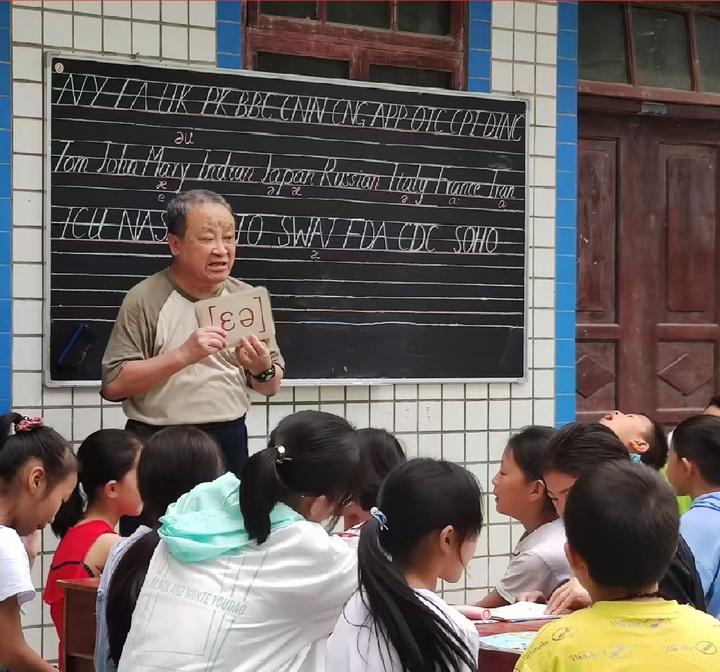 NY LA UK PK BBC CNN CNG APP OTC CPI DINC
əu
Tom John Mary Indian Japan Russian Italy France Iran
TCU NAS TO SWAT FDA CDC SOHO
[ɛə]
BLACK AND WHITE